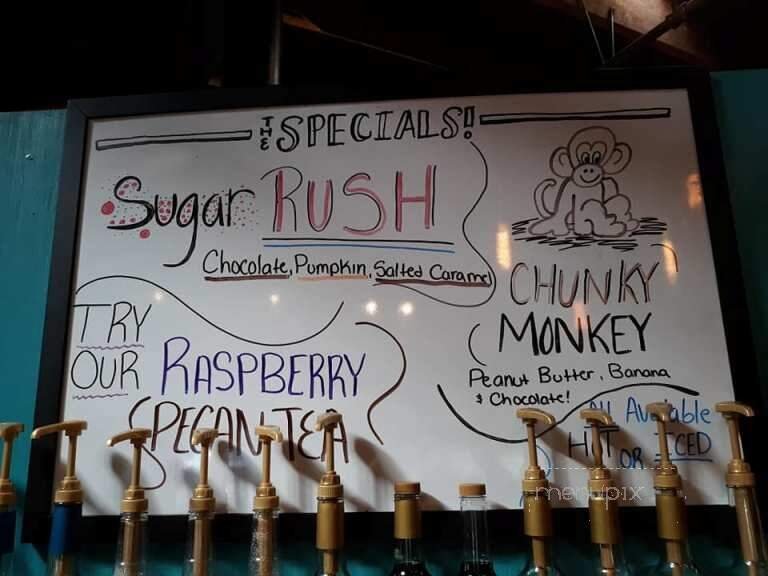 THE SPECIALS!
Sugar RUSH
Chocolate, Pumpkin, Salted Caramel
TRY
OUR RASPBERRY
PECAN TEA
CHUNKY
MONKEY
Peanut Butter, Banana
& Chocolate!
All Available
HOT OR ICED
menupix